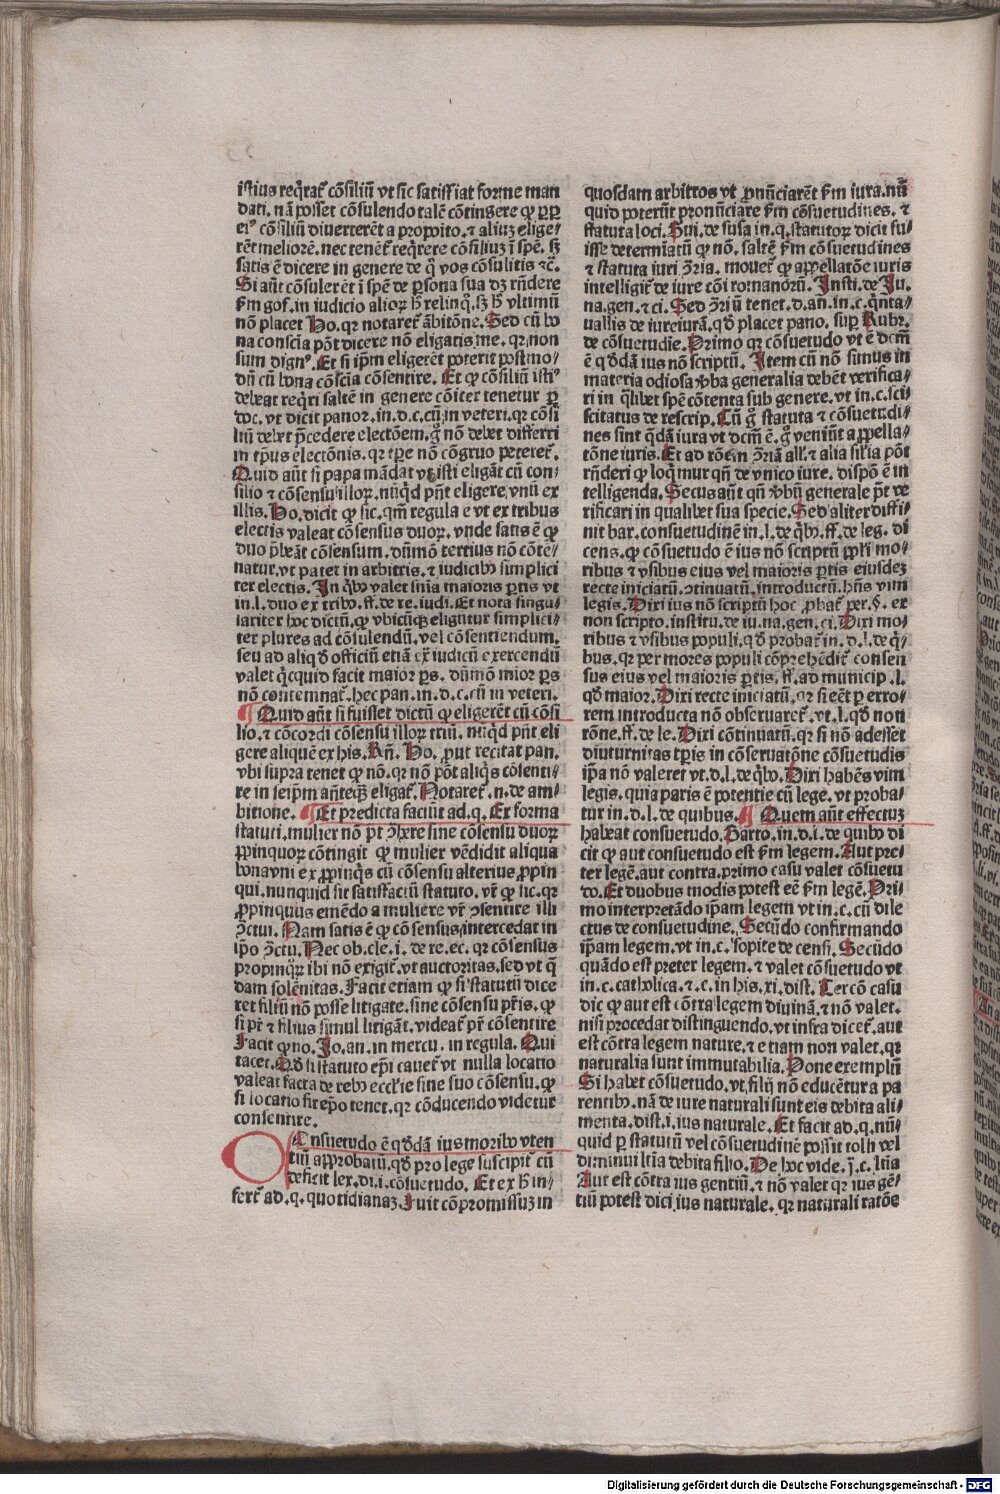 istius req̃rat̃ cõsiliũ vt sic satisfiat forme man
dati. nã posset cõsulendo talẽ cõtingere ꝙ ꝓp̱
eiꝰ cõsiliũ diuerteret a proposito. ⁊ aliuꝫ elige-
rẽt meliorẽ. nec tenet̃ req̃rere cõsiliuꝫ ĩ spẽ. sꝫ
satis ẽ dicere in genere de q̃ vos cõsulitis ⁊c̃.
Si aũt cõsulerẽt ĩ spẽ de ꝑsona sua dꝫ rñdere
ẜm gof. in iudicio alioꝝ h̃ relinq̃. sꝫ h̃ vltimũ
nõ placet Ho. qꝛ notaret̃ ãbitõne. Sed cũ bo
na consciã põt dicere nõ eligatis me. qꝛ non
sum dignꝰ. Et si ip̃m eligerẽt poterit postmo-
dũ cũ bona cõscĩa cõsentire. Et ꝙ cõsiliũ istiꝰ
debeat req̃ri saltẽ in genere cõiter tenetur ꝑ
doc. vt dicit panoꝛ. in. d. c. cũ in veteri. qꝛ cõsi
liũ debet p̃cedere electõem. g̊ nõ debet differri
in tp̃us electõnis. qꝛ tp̃e nõ cõgruo peteret̃.
Quid aũt si papa mãdat vt isti eligãt cũ con-
silio ⁊ cõsensu illoꝝ. nũqd pñt eligere vnũ ex
illis. Ho. dicit ꝙ sic. qm̃ regula e vt ex tribus
electis valeat cõsensus duoꝝ. vnde satis ẽ ꝙ
duo p̃beãt cõsensum. dũmõ tertius nõ cõte-
natur. vt patet in arbitris. ⁊ iudicibꝰ simplici
ter electis. In q̃bꝰ valet snĩa maioris ꝑtis vt
in. l. duo ex tribꝰ. ff. de re. iudi. Et nota singu-
lariter hoc dictũ. ꝙ vbicũqꝫ eligũtur simplici-
ter plures ad cõsulendũ. vel cõsentiendum.
seu ad aliqđ officiũ etiã ex̃ iudiciũ exercendũ
valet q̃cquid facit maior ꝑs. dũmõ mior ꝑs
nõ contemnat̃. hec pan. in. d. c. cũ in veteri.
¶ Quid aũt si fuisset dictũ ꝙ eligerẽt cũ cõsi
lio. ⁊ cõcordi cõsensu illoꝝ triũ. nũqd pñt eli
gere aliquẽ ex his. Rñ. Ho. ꝓut recitat pan.
vbi supra tenet ꝙ nõ. qꝛ nõ põt aliq̃s cõsenti-
re in seip̃m añteqꝫ eligat̃. Notaret̃. n. de am-
bitione. ¶ Et predicta faciũt ad. q. Ex forma
statuti. mulier nõ p̃t ꝯ̃here sine cõsensu duoꝝ
ꝓpinquoꝝ cõtingit ꝙ mulier vẽdidit aliqua
bona vni ex ꝓpinq̃s cũ cõsensu alterius ꝓpin
qui. nunquid sit satisfactũ statuto. vr̃ ꝙ sic. qꝛ
ꝓpinquus emẽdo a muliere vr̃ ꝯsentire illi
ꝯ̃ctui. Nam satis ẽ ꝙ cõsensus intercedat in
ip̃o ꝯ̃ctu. Nec ob. cle. j. de re. ec. qꝛ cõsensus
propinq̃ꝝ ibi nõ exigit̃. vt auctoritas. sed vt q̃
dam solẽnitas. Facit etiam ꝙ si statutũ dice
ret filiũ nõ posse litigate. sine cõsensu pr̃is. ꝙ
si pr̃ ⁊ filius simul litigãt. videat̃ pr̃ cõsentire
Facit ꝙ no. Jo. an. in mercu. in regula. Qui
tacet. Qđ si statuto ep̃i cauet̃ vt nulla locatio
valeat facta de rebꝰ eccl̃ie sine suo cõsensu. ꝙ
si locatio fit ep̃o tenet. qꝛ cõducendo videtur
consentire.
Onsuetudo ẽ q̃dã ius moribꝰ vten
tiũ approbatũ. qđ pro lege suscipit̃ cũ
deficit lex. di. i. cõsuetudo. Et ex h̃ in-
fert̃ ad. q. quotidianaꝫ. Fuit cõpromissuꝫ in
quosdam arbitros vt ꝓnũciarẽt ẜm iura. nũ
quid poterũt pronũciare ẜm cõsuetudines. ⁊
statuta loci. Gui. de susa in. q. statutoꝝ dicit fu-
isse determĩatũ ꝙ nõ. saltẽ ẜm cõsuetudines
⁊ statuta iuri ꝯ̃ria. mouet̃ ꝙ appellatõe iuris
intelligit̃ de iure cõi romanorũ. Insti. de Ju.
na. gen. ⁊ ci. Sed ꝯ̃riũ tenet. d. an. in. c. q̃nta-
uallis de iureiurã. qđ placet pano. suꝑ Rubr.
de cõsuetudie. Primo qꝛ cõsuetudo vt ẽ dcm̃
ẽ q̃dã ius nõ scriptũ. Item cũ nõ simus in
materia odiosa v̾ba generalia debẽt verifica-
ri in q̃libet spẽ cõtenta sub genere. vt in. c. sci-
scitatus de rescrip. Cũ g̊ statuta ⁊ cõsuetudi-
nes sint q̃dã iura vt dcm̃ ẽ. g̊ veniũt appella-
tõne iuris. Et ad rõem ꝯ̃riã all̃. ⁊ alia sil̃ia põt
rñderi ꝙ loq̃mur qñ de vnico iure. dispõ ẽ in
telligenda. Secus aũt qñ v̾bũ generale p̃t ve
rificari in qualibet sua specie. Sed aliter diffi-
nit bar. consuetudinẽ in. l. de q̃bꝰ. ff. de leg. di
cens. ꝙ cõsuetudo ẽ ius nõ scriptũ ppl̃i mo-
ribus ⁊ vsibus eius vel maioris ꝑtis eiusdeꝫ
recte iniciatũ. ꝯtinuatũ. introductũ. hñs vim
legis. Dixi ius nõ scriptũ hoc ꝓbat̃ per. §. ex
non scripto. institu. de iu. na. gen. ci. Dixi mo-
ribus ⁊ vsibus populi. qđ probat̃ in. d. l. de q̃-
bus. qꝛ per mores populi cõprehẽdit̃ consen
sus eius vel maioris ꝑtis. ff. ad municip. l.
qđ maior. Dixi recte iniciatũ. qꝛ si eẽt ꝑ erro-
rem introducta nõ obseruaret̃. vt. l. qđ non
rõne. ff. de le. Dixi cõtinuatũ. qꝛ si nõ adesset
diuturnitas tp̃is in cõseruatõne cõsuetudis
ip̃a nõ valeret vt. d. l. de q̃bꝰ. Dixi habẽs vim
legis. quia paris ẽ potentie cũ lege. vt proba-
tur in. d. l. de quibus. ¶ Quem aũt effectuꝫ
habeat consuetudo. Barto. in. d. l. de quibꝰ di
cit ꝙ aut consuetudo est ẜm legem. Aut pre-
ter legẽ. aut contra. primo casu valet cõsuetu
do. Et duobus modis potest eẽ ẜm legẽ. Pri-
mo interpretãdo ip̃am legem vt in. c. cũ dile
ctus de consuetudine. Secũdo confirmando
ip̃am legem. vt in. c. sopite de censi. Secũdo
quãdo est preter legem. ⁊ valet cõsuetudo vt
in. c. catholica. ⁊. c. in his. xi. dist. Tercõ casu
dic ꝙ aut est cõtra legem diuinã. ⁊ nõ valet.
nisi procedat distinguendo. vt infra dicet̃. aut
est cõtra legem nature. ⁊ etiam non valet. qꝛ
naturalia sunt immutabilia. Pone exemplũ
Si habet cõsuetudo. vt filij nõ educẽtur a pa
rentibꝰ. nã de iure naturali sunt eis debita ali-
menta. dist. i. ius naturale. Et facit ad. q. nũ-
quid ꝑ statutũ vel cõsuetudinẽ possit tolli vel
diminui l̃tĩa debita filio. De hoc vide. j. c. l̃tĩa
Aut est cõtra ius gentiũ. ⁊ nõ valet qꝛ ius gẽ-
tiũ potest dici ius naturale. qꝛ naturali ratõe
Digitalisierung gefördert durch die Deutsche Forschungsgemeinschaft - DFG